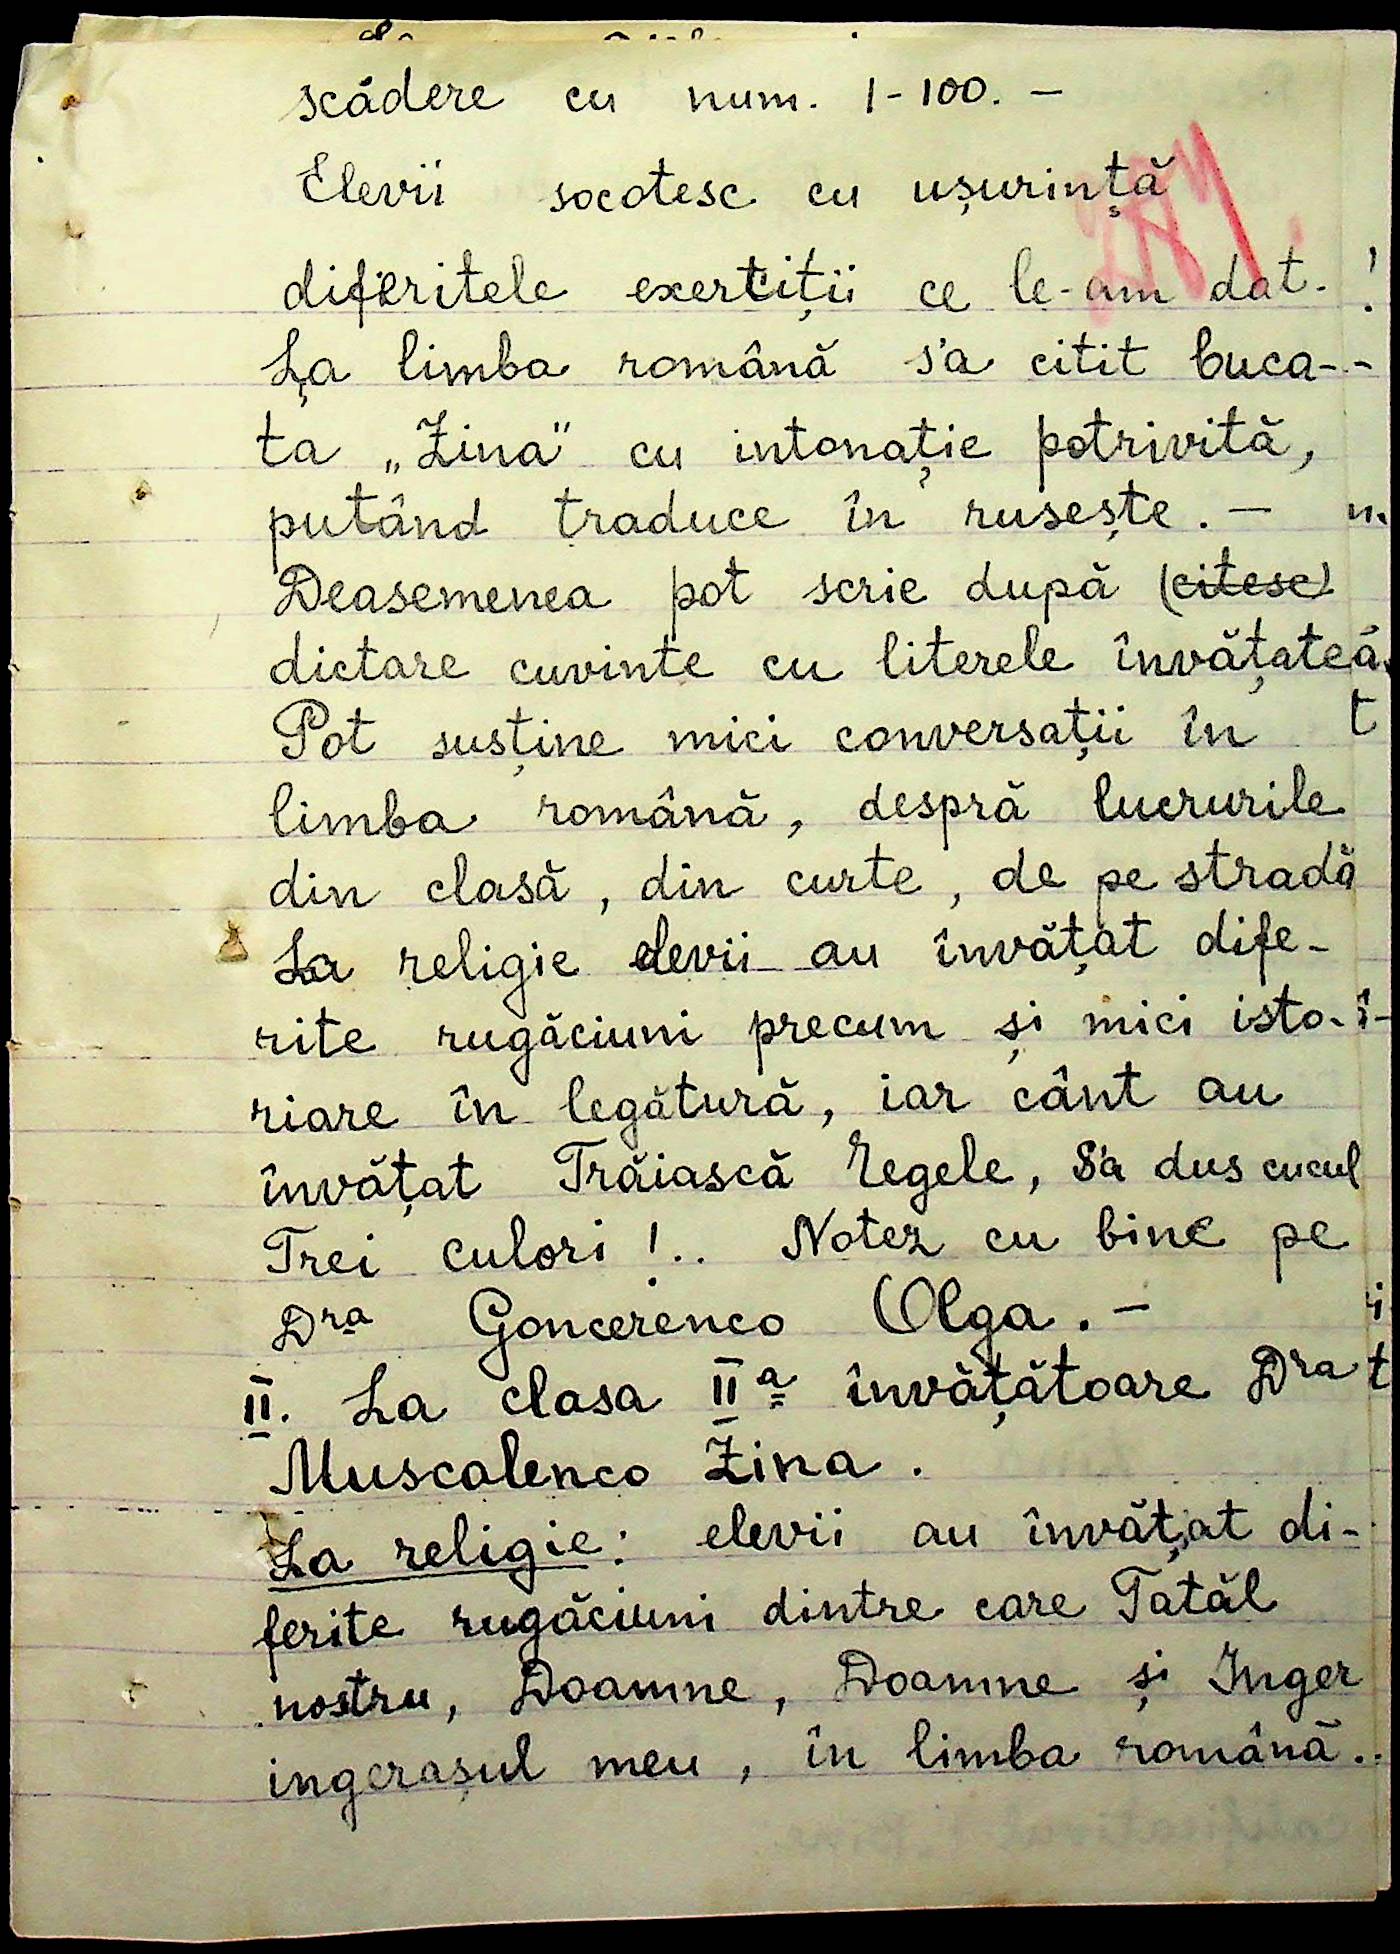 scădere cu num. 1-100. -
Elevii socotesc cu ușurință
diferitele exerciții ce le-am dat.
La limba română s'a citit buca-
ta „Zina" cu intonație potrivită,
putând traduce în rusește. -
Deasemenea pot scrie după (citesc)
dictare cuvinte cu literele învățate
Pot susține mici conversații în
limba română, despră lucrurile
din clasă, din curte, de pe stradă
La religie elevii au învățat dife-
rite rugăciuni precum și mici isto-
riare în legătură, iar cânt au
învățat Trăiască Regele, S'a dus cucul
Trei culori !.. Notez cu bine pe
Dra Goncerenco Olga. -
II. La clasa IIa învățătoare Dra
Muscalenco Zina.
La religie: elevii au învățat di-
ferite rugăciuni dintre care Tatăl
nostru, Doamne, Doamne și Inger
ingerașul meu, în limba română.